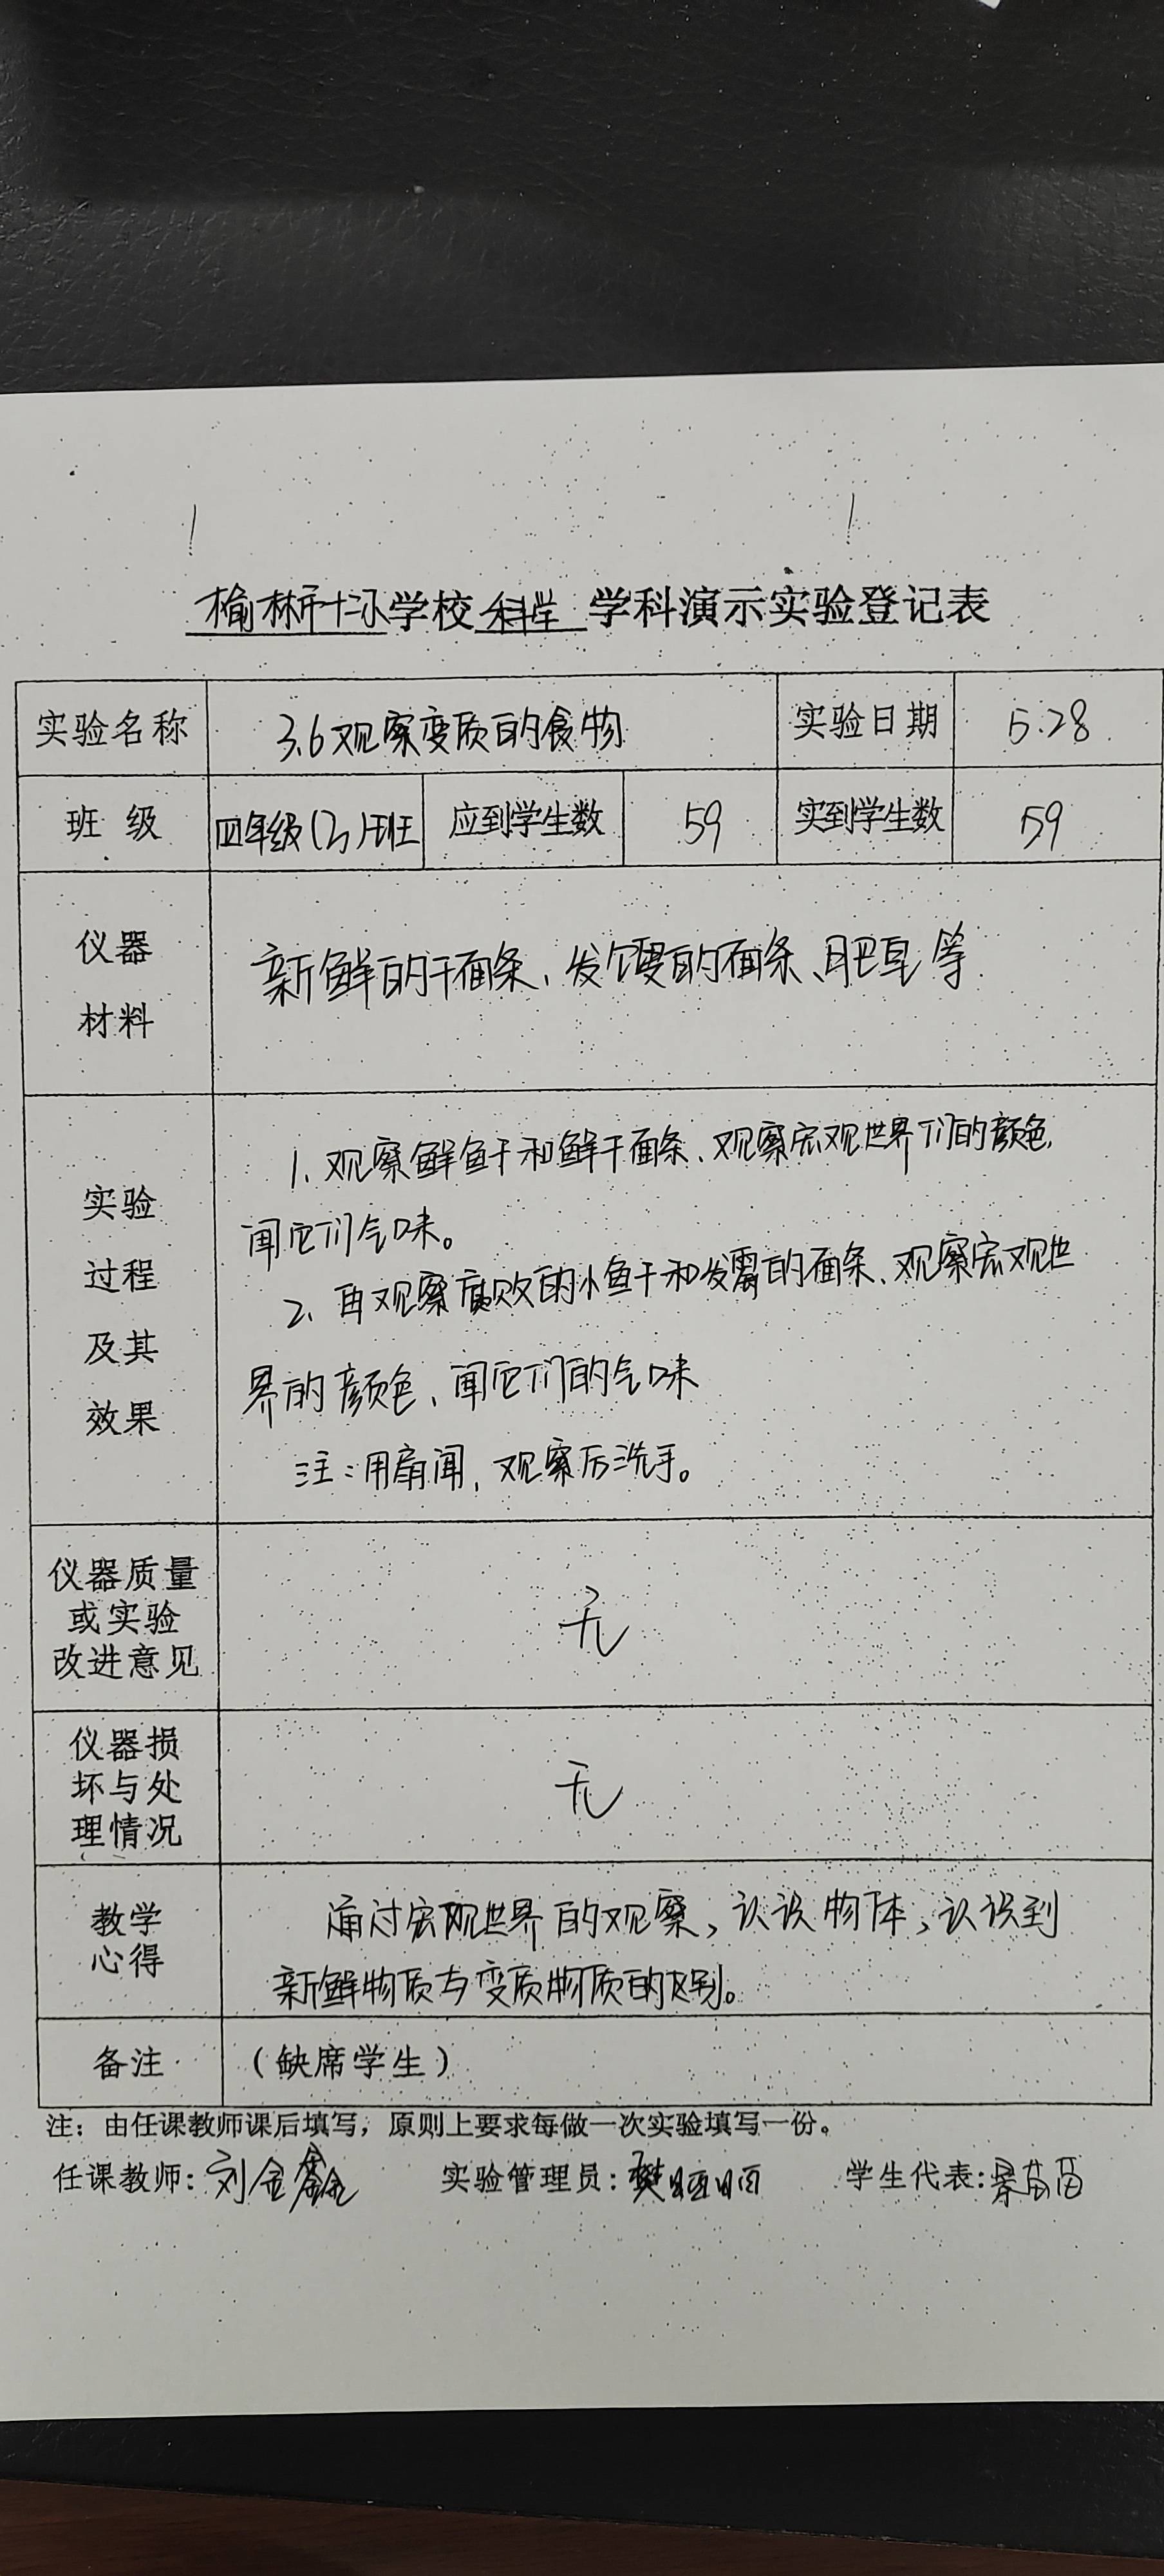 榆林市十二小学校 科学 学科演示实验登记表
实验名称 3.6观察变质的食物 实验日期 5.28
班 级 四年级(2)班 应到学生数 59 实到学生数 59
仪器
材料
新鲜的干面条、发霉的面条、肥皂等
实验
过程
及其
效果
1、观察鲜鱼干和鲜干面条、观察宏观世界们的颜色,
闻它们气味。
2、再观察腐败的小鱼干和发霉的面条、观察宏观世
界的颜色、闻它们的气味
注:用扇闻,观察后洗手。
仪器质量
或实验
改进意见
无
仪器损
坏与处
理情况
无
教学
心得
通过宏观世界的观察,认识物体,认识到
新鲜物质与变质物质的区别。
备注 (缺席学生)
注:由任课教师课后填写,原则上要求每做一次实验填写一份。
任课教师:刘金鑫 实验管理员:樊 学生代表:苗苗